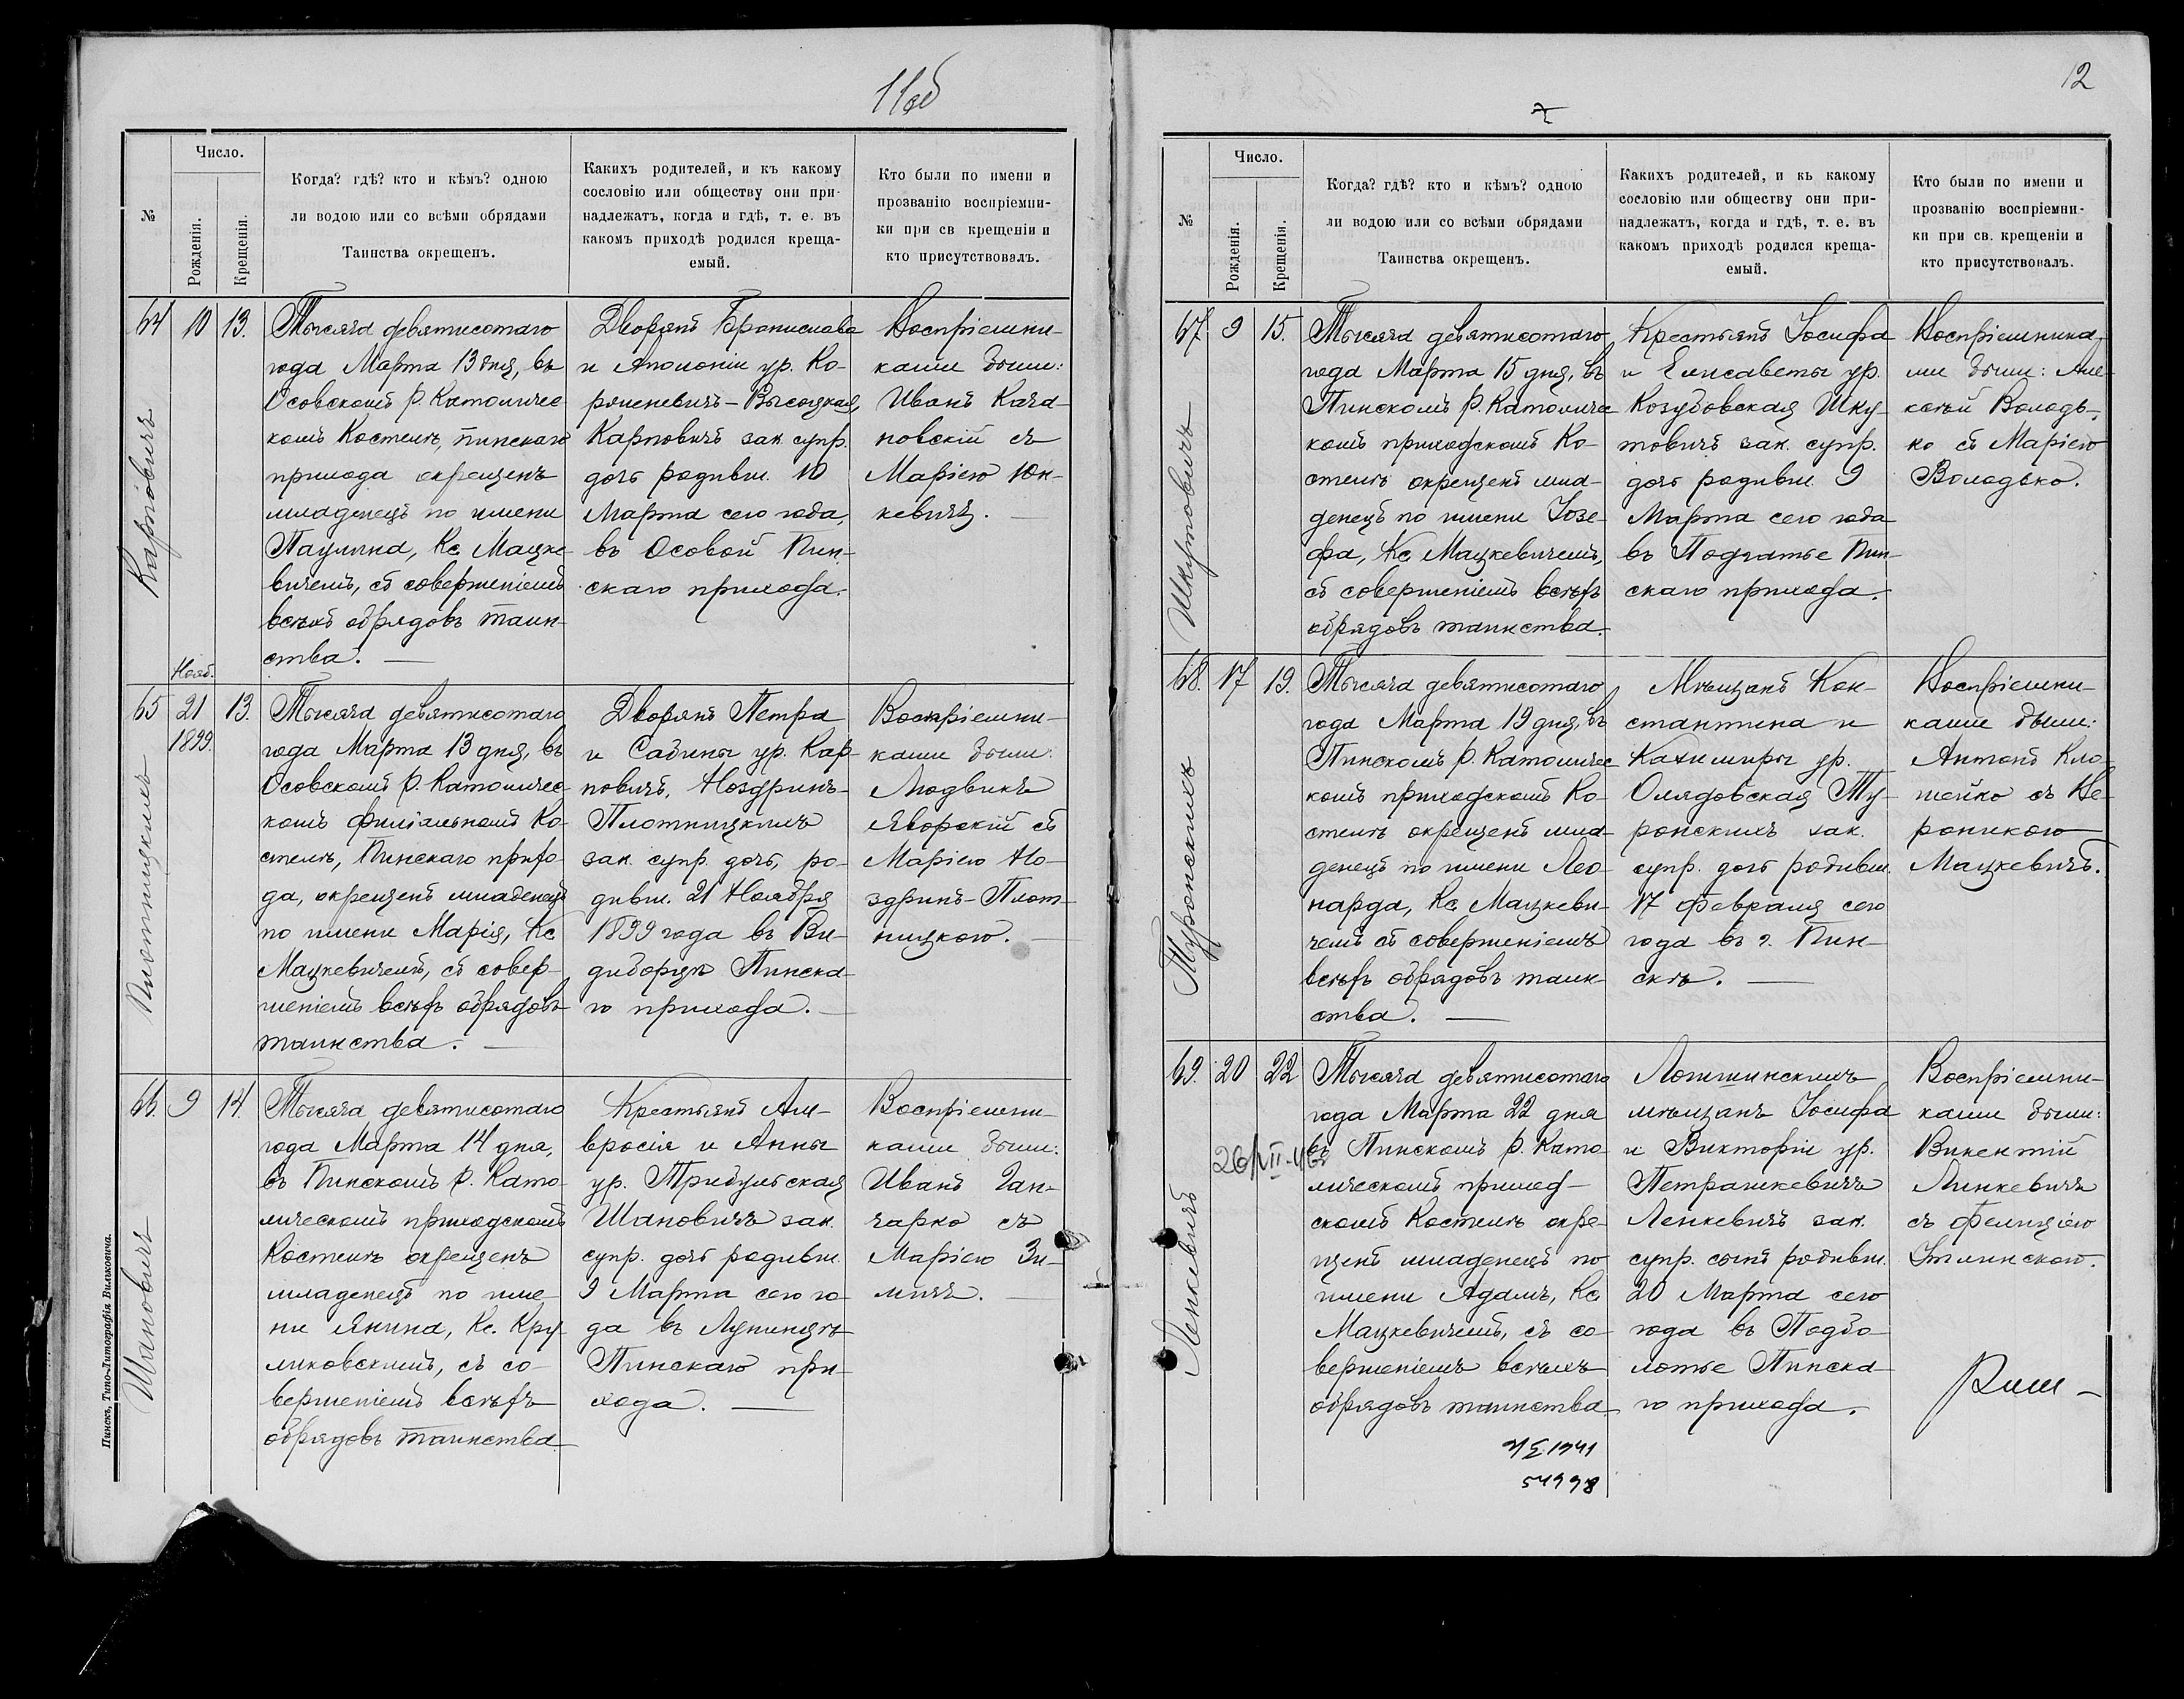 11об
№
Число.
Рожденія.
Крещенія.
Когда? гдѣ? кто и кѣмъ? одною
ли водою или со всѣми обрядами
Таинства окрещенъ.
Какихъ родителей, и къ какому
сословію или обществу они при-
надлежатъ, когда и гдѣ, т. е. въ
какомъ приходѣ родился креща-
емый.
Кто были по имени и
прозванію воспріемни-
ки при св крещеніи и
кто присутствовалъ.
64
10
13.
Карповичъ
Тысяча девятисотаго
года Марта 13 дня, въ
Осовскомъ Р. Католичес
комъ Костелѣ, пинскаго
прихода окрещенъ
младенецъ по имени
Паулина, Кс. Мацке
вичемъ, съ совершеніемъ
всѣхъ обрядовъ таин-
ства.
Дворянъ Бронислава
и Аполоніи ур. Ко-
рженевичъ-Высоцкая
Карповичъ зак. супр.
дочь родивш. 10
Марта сего года,
въ Осовой Пин-
скаго прихода.
Воспріемни-
ками были:
Иванъ Кача-
новскій съ
Маріею Юн-
кевичъ.
65
Нояб.
21
1899.
13.
Плотницкихъ
Тысяча девятисотаго
года Марта 13 дня, въ
Осовскомъ Р. Католичес-
комъ филіальномъ Ко-
стелѣ, Пинскаго прихо-
да, окрещенъ младенецъ
по имени Марія, Кс
Мацкевичемъ, съ совер-
шеніемъ всѣхъ обрядовъ
таинства.
Дворянъ Петра
и Сабины ур. Кар-
повичъ, Ноздринъ-
Плотницкихъ
зак. супр. дочь, ро-
дивш. 21 Ноября
1899 года въ Ви-
диборцѣ Пинска-
го прихода.
Воспріемни-
ками были:
Людвикъ
Яворскій съ
Маріею Но-
здринъ-Плот-
ницкою.
66.
9
14.
Шановичъ
Тысяча девятисотаго
года Марта 14 дня,
въ Пинскомъ Р. Като-
лическомъ приходскомъ
Костелѣ окрещенъ
младенецъ по име-
ни Янина, Кс. Кру
ликовскимъ, съ со-
вершеніемъ всѣхъ
обрядовъ таинства.
Крестьянъ Ам-
вросія и Анны
ур. Трибульская
Шановичъ зак.
супр. дочь родивш.
9 Марта сего го-
да въ Лунинцѣ
Пинскаго при-
хода.
Воспріемни-
ками были:
Иванъ Ган-
чарко съ
Маріею Зи-
мичъ.
Пинскъ, Типо-Литографія Вильковича.
12
№
Число.
Рожденія.
Крещенія.
Когда? гдѣ? кто и кѣмъ? одною
ли водою или со всѣми обрядами
Таинства окрещенъ.
Какихъ родителей, и кь какому
сословію или обществу они при-
надлежатъ, когда и гдѣ, т. е. въ
какомъ приходѣ родился креща-
емый.
Кто были по имени и
прозванію воспріемни-
ки при св. крещеніи и
кто присутствовалъ.
67.
9
15.
Шкутовичъ
Тысяча девятисотаго
года Марта 15 дня, въ
Пинскомъ Р. Католичес
комъ приходскомъ Ко-
стелѣ окрещенъ мла-
денецъ по имени Іозе-
фа, Кс Мацкевичемъ,
съ совершеніемъ всѣхъ
обрядовъ таинства.
Крестьянъ Іосифа
и Елисаветы ур.
Козубовская Шку-
товичъ зак. супр.
дочь родивш. 9
Марта сего года
въ Подгатье Пин-
скаго прихода.
Воспріемника-
ми были: Але-
ксѣй Володь-
ко съ Маріею
Володько.
68.
17
19.
Туронскихъ
Тысяча девятисотаго
года Марта 19 дня, въ
Пинскомъ Р. Католичес
комъ приходскомъ Ко-
стелѣ окрещенъ мла-
денецъ по имени Лео-
нарда, Кс. Мацкеви-
чемъ съ совершеніемъ
всѣхъ обрядовъ таин-
ства.
Мѣщанъ Кон-
стантина и
Казимиры ур.
Олядовская Ту-
ронскихъ зак.
супр. дочь родивш.
17 Февраля сего
года въ г. Пин-
скѣ.
Воспріемни-
ками были:
Антонъ Кло-
шейко съ Ве-
роникою
Мацкевичъ.
69.
20
22
Ленкевичъ
Тысяча девятисотаго
года Марта 22 дня
въ Пинскомъ Р. Като-
лическомъ приход-
скомъ Костелѣ окре-
щенъ младенецъ по
имени Адамъ, Кс.
Мацкевичемъ, съ со-
вершеніемъ всѣхъ
обрядовъ таинства.
Логишинскихъ
мѣщанъ Іосифа
и Викторіи ур.
Петрашкевичъ
Ленкевичъ зак.
супр. сынъ родивш.
20 Марта сего
года въ Подбо-
лотье Пинска-
го прихода.
Воспріемни-
ками были:
Викентій
Линкевичъ
съ Фелиціею